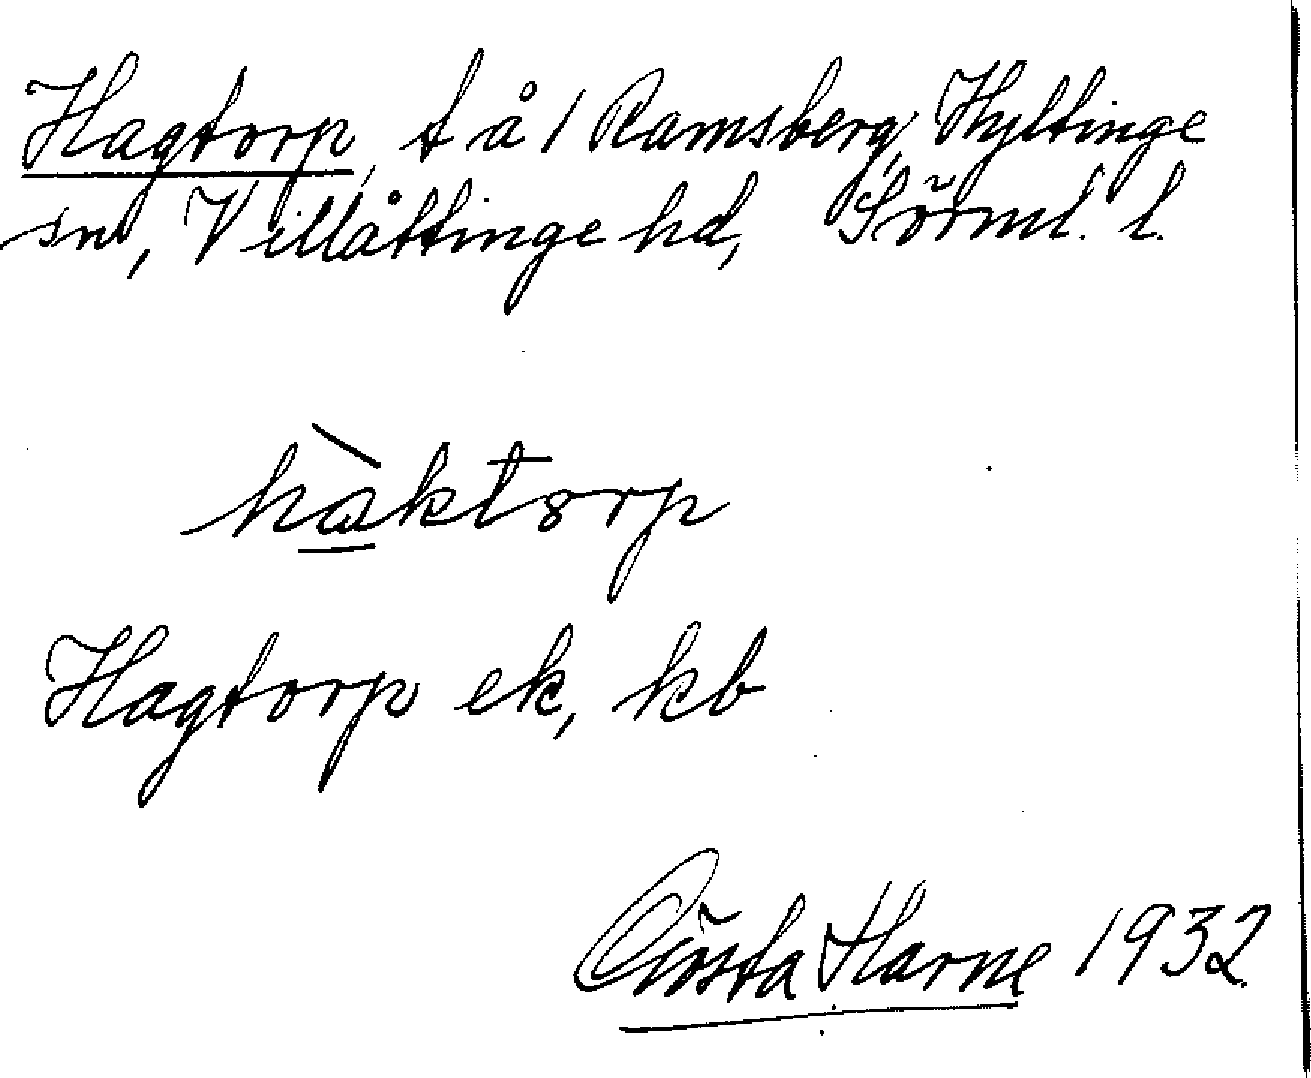 Hagtorp, t å 1 Ramsberg, Hyltinge
sn, Villåttinge hd, Sörml. l.
hàktorp
Hagtorp ek, kb
Gösta Harne 1932